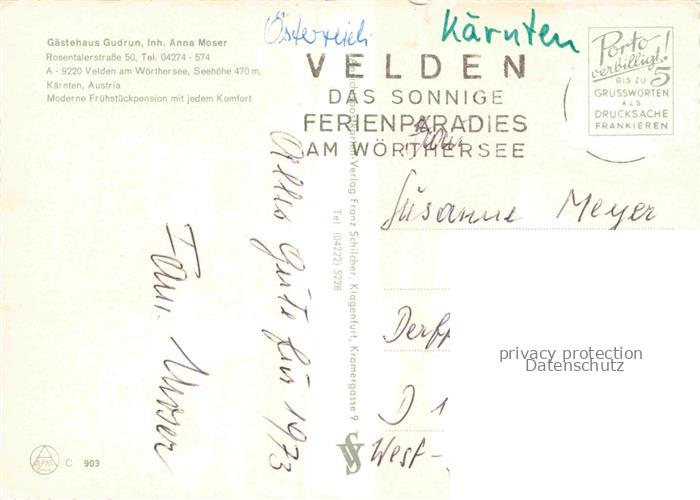 Gästehaus Gudrun, Inh. Anna Moser
Rosentalerstraße 50, Tel. 04274 - 574
A - 9220 Velden am Wörthersee, Seehöhe 470 m,
Kärnten, Austria
Moderne Frühstückpension mit jedem Komfort
Österreich
Kärnten
VELDEN
DAS SONNIGE
FERIENPARADIES
AM WÖRTHERSEE
Porto-
verbilligt!
BIS ZU 5
GRUSSWORTEN
ALS
DRUCKSACHE
FRANKIEREN
Alles Gute für 1973
Fam. Moser
-Verlag Franz Schilcher, Klagenfurt, Kramergasse 9
Tel. (04222) 5228
Susanne Meyer
D 1
West-
privacy protection
Datenschutz
C 903